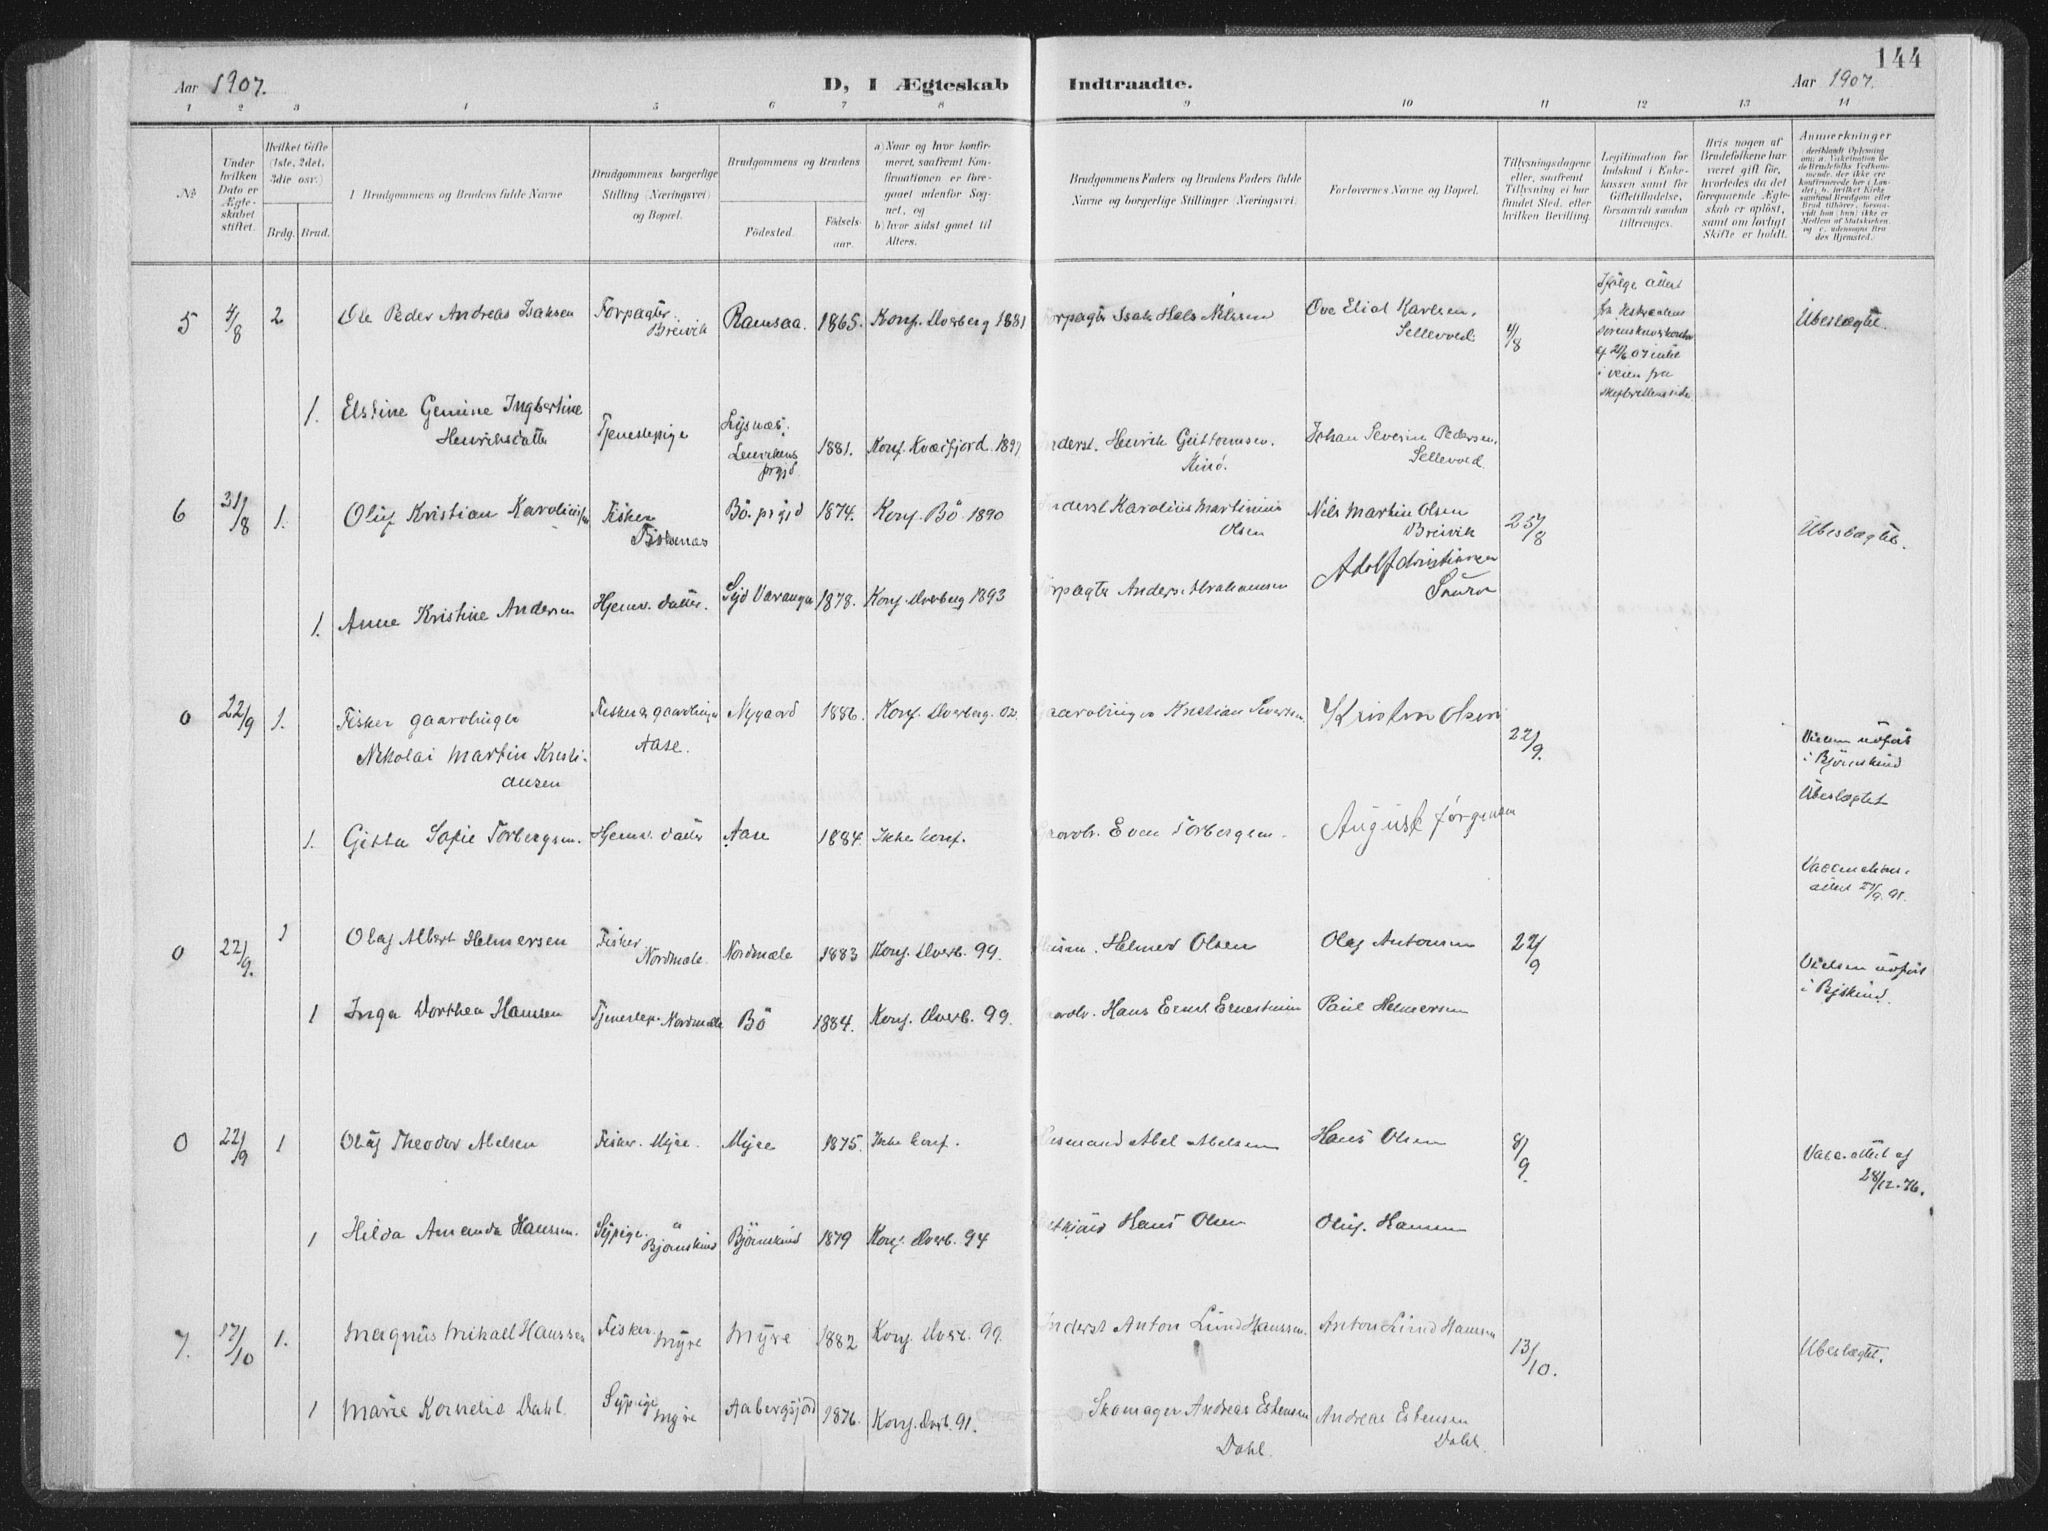 144
Aar 1907.
D, I Ægteskab Indtraadte.
Aar 1907.
1 2 3 4 5 6 7 8 9 10 11 12 13 14
No
Under hvilken Dato er Ægteskabet stiftet.
Hvilket Gifte (1ste, 2det, 3die osv.)
Brdg. Brud.
Brudgommens og Brudens fulde Navne
Brudgommens borgerlige Stilling (Næringsvei) og Bopæl.
Brudgommens og Brudens
Födested.
Födselsaar.
a) Naar og hvor konfirmeret, saafremt Konfirmationen er foregaaet udenfor Sognet, og
b) hvor sidst gaaet til Alters.
Brudgommens Faders og Brudens Faders fulde Navne og borgerlige Stillinger (Næringsvei)
Forlovernes Navne og Bopæl.
Tillysningsdagene eller, saafremt Tillysning ei har fundet Sted, efter hvilken Bevilling.
Legitimation for Indskud i Enkekassen samt for Giftetilladelse, forsaavidt saadan tiltrænges.
Hvis nogen af Brudefolkene har været gift för, hvorledes da det foregaaende Ægteskab er oplöst, samt om lovligt Skifte er holdt.
Anmerkninger
5 4/8 2 Ole Peder Andreas Isaksen Forpagter Breivik Ramsaa. 1865. Konf. Dverberg 1881 Forpagter Isak Hals Nilssen Ove Eliot Karlsen, Sellevold 4/8 Ubeslægtet.
1. Elstine Gemine Ingbertine Henriksdatter Tjenestepige Lysnæs, Lenvikens prgjd 1881. Konf. Kvæfjord. 1897 Inderst. Henrik Guttormsen. Johan Severin Pedersen. Sellevold.
6 31/8 1. Oluf Kristian Karoliussen Fisker Bö. prgjd 1874. Konf. Bö. 1890 Inderst Karolius Martinius Olsen Nils Martin Olsen Breivik 25/8 Ubeslægtet.
1. Anne Kristine Andersen Hjemv. datter. Syd Varanger 1878. Konf. Dverberg 1893 Forpagter Anders Abrahamsen Adolf Kristiansen
0 22/9 1. Fisker gaardbruger Nikolai Martin Kristiansen Fisker og gaardbruger Aase. Nygaard 1886. Konf. Dverberg. 02. Gaardbruger Kristian Sivertsen Kristen Olsen 22/9. Vielsen udfört i Björnskind Ubeslægtet
1. Gitta Sofie Torbergsen. Hjemv. datter Aase 1884. Ikke konf. Gaardbr. Even Torbergsen. August Jörgensen Vaccinations. attest
0 22/9. 1 Olaf Albert Helmersen Fisker Nordmæle. Nordmæle 1883 Konf. Dverb. 99. Husm. Helmer Olsen Olaf Antonsen 22/9 Vielsen udfört i Bjskind.
1 Inga Dorthea Hansen Tjenestep. Nordmæle Bö 1884. Konf. Dverb. 99. Gaardbr. Hans Ernst Ernestinius Paul Helmersen
0 22/9 1 Olaf Theodor Abelsen Fisker. Myre. Myre 1875. Ikke konf. Husmand Abel Abelsen Hans Olsen 8/9. Vacc. attest af 28/12. 76.
1 Hilda Amanda Hanssen. Sypige. Björnskind Björnskind 1879 Konf. Dverb. 94 Hans Olsen Oluf Hansen
7. 17/10 1. Magnus Mikall Hanssen Fisker. Myre Myre 1882 Konf. Dverb. 99. Inderst Anton Lund Hanssen. Anton Lund Hansen 13/10. Ubeslægtet.
1 Marie Kornelie Dahl. Sypige Myre Aabergsjord 1876. Konf. Dverb. 91. Skomager Andreas Estensen Dahl. Andreas Estensen Dahl.